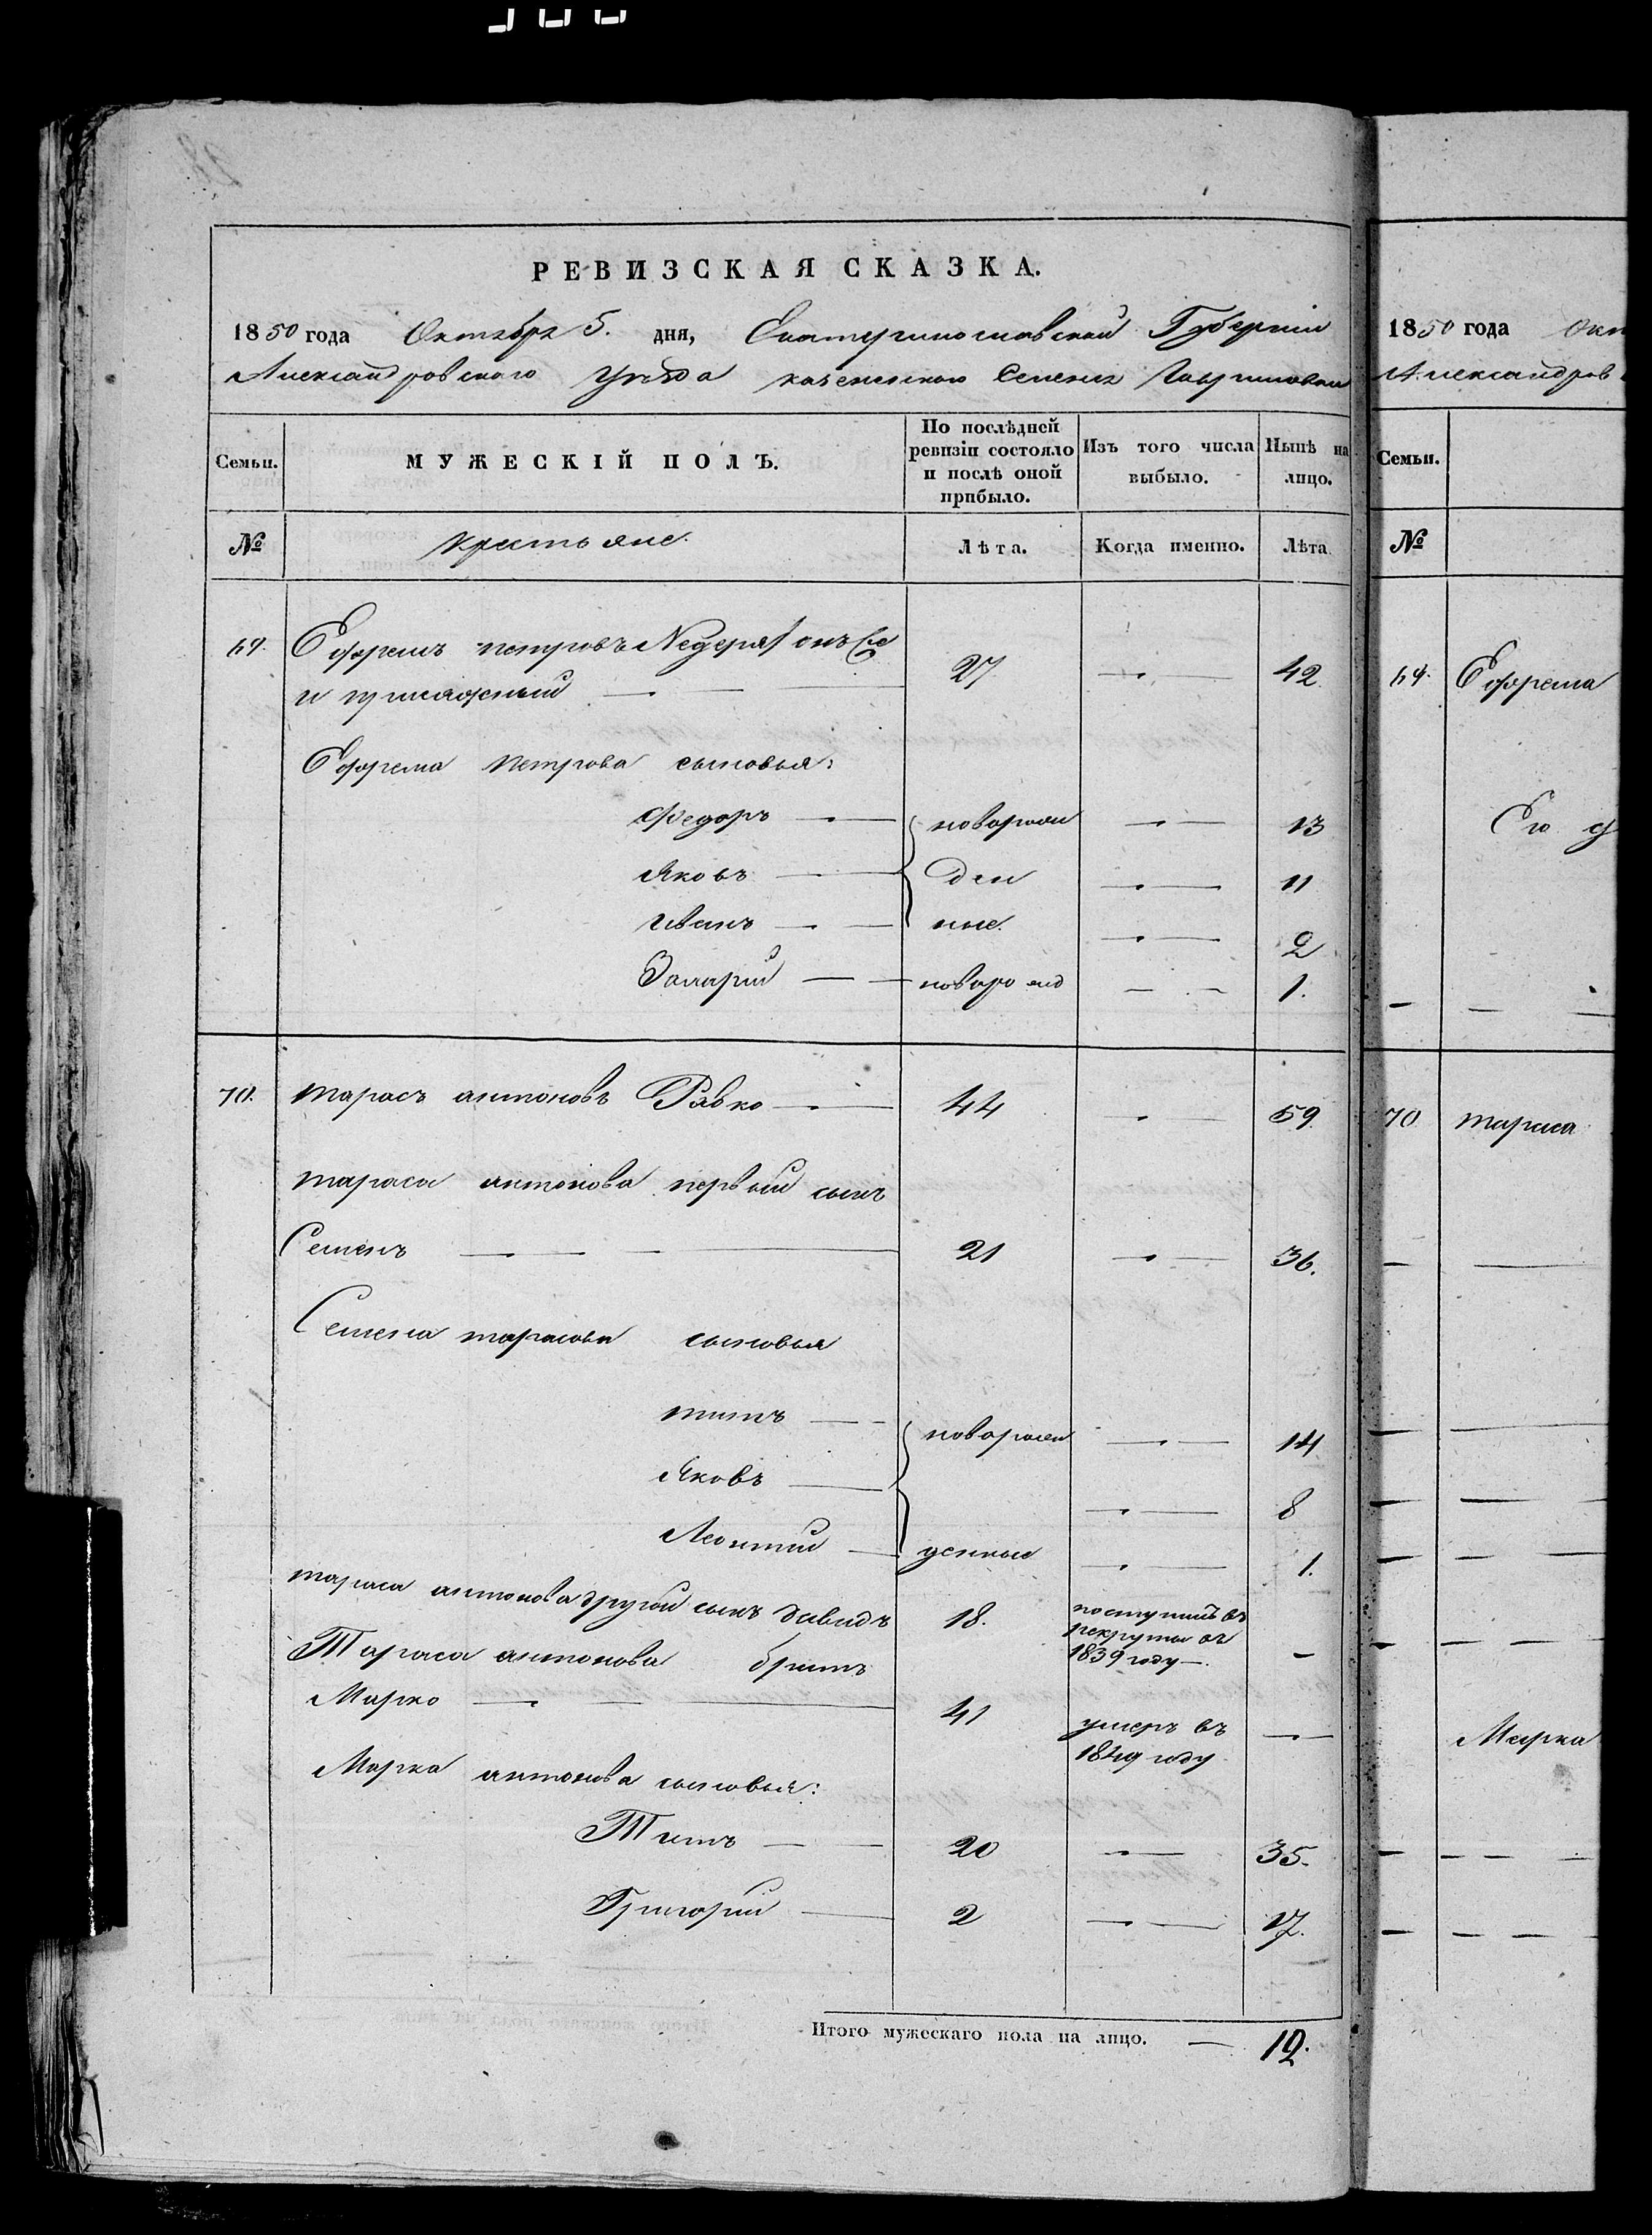 РЕВИЗСКАЯ СКАЗКА.
1850 года Октября 5. дня, Екатеринославской Губернiи
Александровскаго уѣзда казеннаго Селенiя Гавриловки
Семьи. МУЖЕСКІЙ ПОЛЪ. По послѣдней ревизіи состояло и послѣ оной прибыло. Изъ того числа выбыло. Нынѣ на лицо.
№ Крестьяне. Лѣта. Когда именно. Лѣта
69. Ефремъ петровъ
27 — 42
Ефрема Петрова сыновья:
Федоръ — новорож — 13
Яковъ — ден — 11
Иванъ — ные. — 2
новорожд — 1.
70. тарасъ антоновъ Рябко — 44 — 59
тараса антонова первый сынъ
Семенъ — 21 — 36.
Семена тарасова сыновья
титъ — новорожд — 14
Яковъ — — 8
Леонтий — денные — 1.
тараса антонова другой сынъ давидъ 18. поступилъ въ рекруты въ 1839 году —. —
Тараса антонова братъ
Марко — 41 умеръ въ 1849 году —
Марка антонова сыновья:
Титъ — 20 — 35.
Григорий — 2 — 17.
Итого мужескаго пола на лицо. — 12.
1850 года Окт
Александров
Семьи.
№
69. Ефрема
Его
70 тараса
Марка